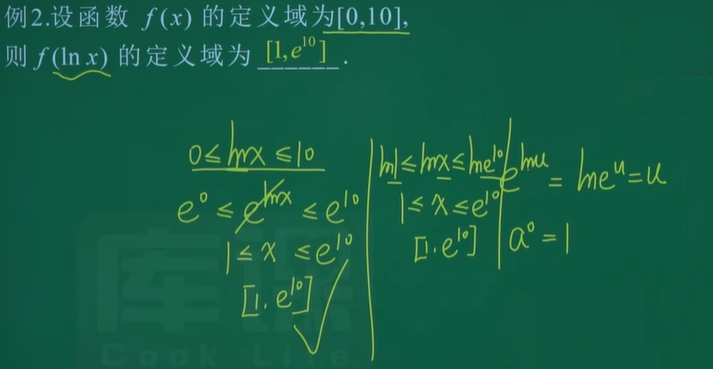 例2.设函数 f(x) 的定义域为[0,10],
则 f(ln x) 的定义域为 [1,e¹⁰] .
0≤lnx≤10
e⁰≤e^{lnx}≤e¹⁰
1≤x≤e¹⁰
[1,e¹⁰]
ln1≤lnx≤lne¹⁰
1≤x≤e¹⁰
[1,e¹⁰]
e^{lnu}=lne^u=u
a⁰=1
库课
Cook Life